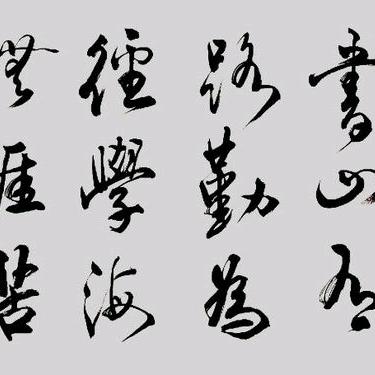 書山有
路勤為
徑學海
無涯苦